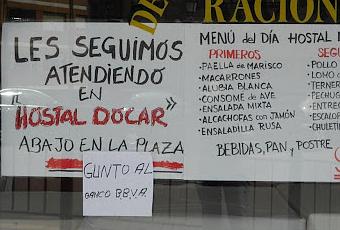 DE
RACION
LES SEGUIMOS
ATENDIENDO
EN
"HOSTAL DOCAR"
ABAJO EN LA PLAZA
GUNTO AL
BANCO B.B.V.A.
MENÚ del DÍA HOSTAL
PRIMEROS
-PAELLA de MARISCO
-MACARRONES
-ALUBIA BLANCA
-CONSOME de AVE
-ENSALADA MIXTA
-ALCACHOFAS con JAMÓN
-ENSALADILLA RUSA
SEGU
-POLLO
-LOMO
-TERNER
-PECHUG
-ENTREC
-ESCALOP
-CHULET
BEBIDAS, PAN y POSTRE